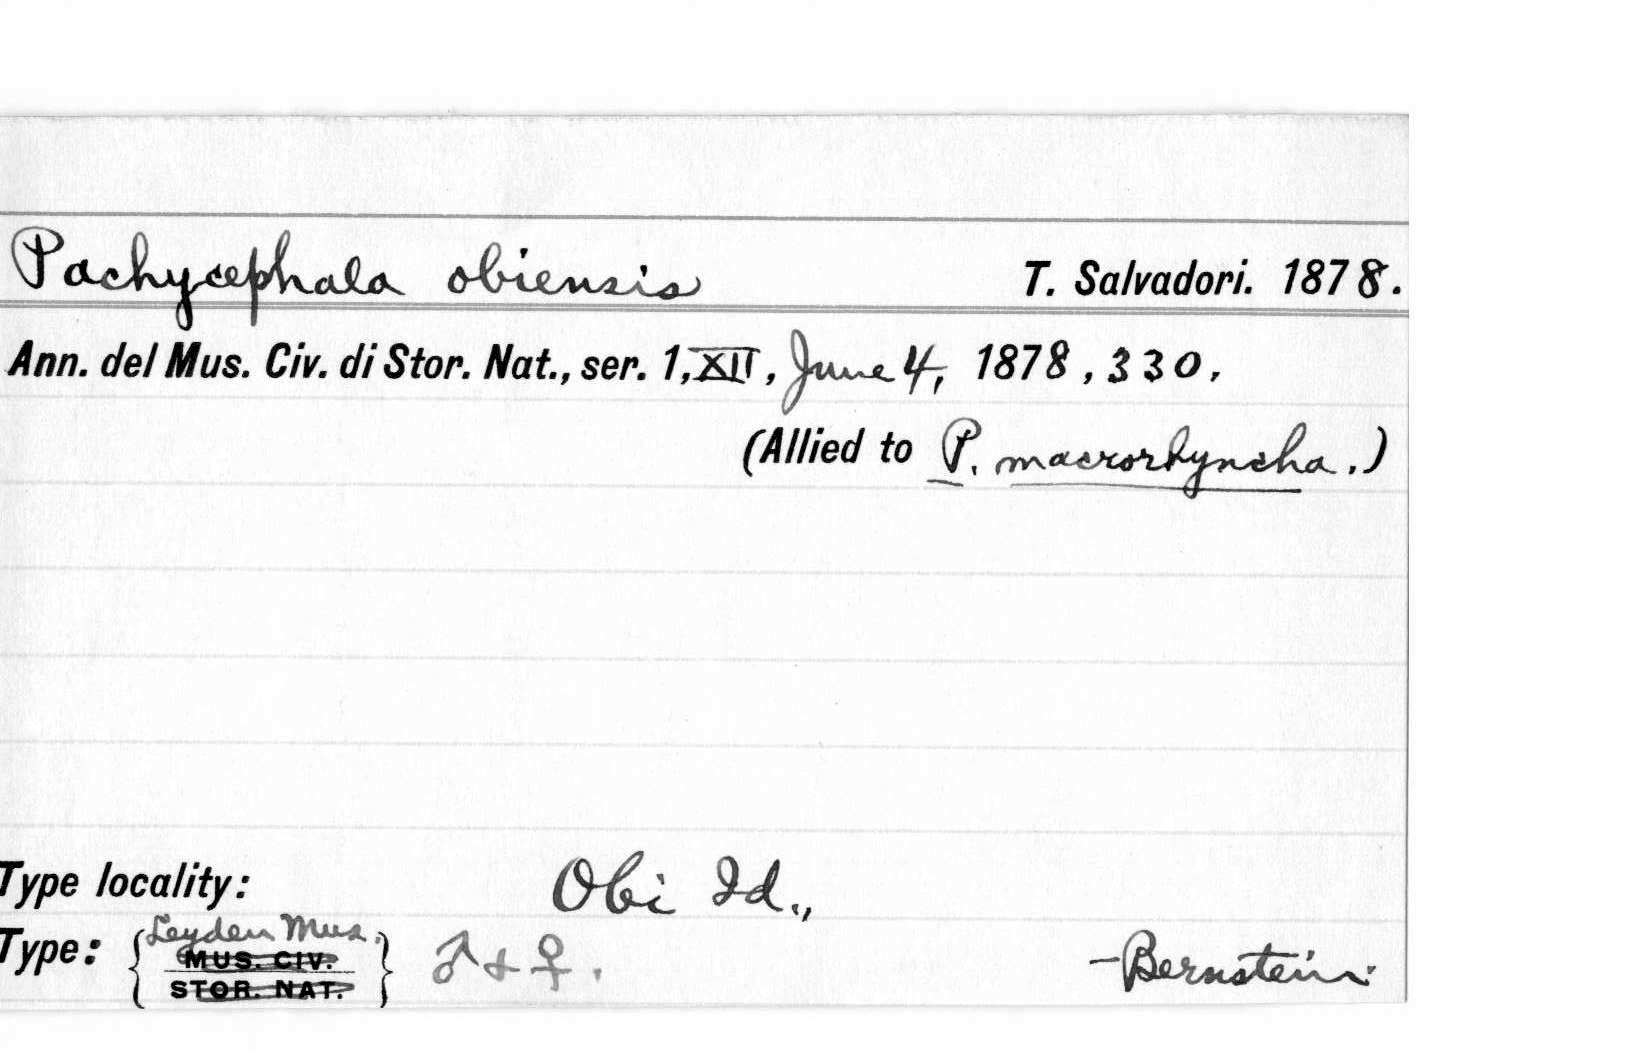 Pachycephala obiensis T. Salvadori. 1878.
Ann. del Mus. Civ. di Stor. Nat., ser. 1, XII, June 4, 1878, 330,
(Allied to P. macrorhyncha.)
Type locality: Obi Id.,
Leyden Mus.
Type: { MUS. CIV. } ♂ + ♀. -Bernstein.
STOR. NAT.